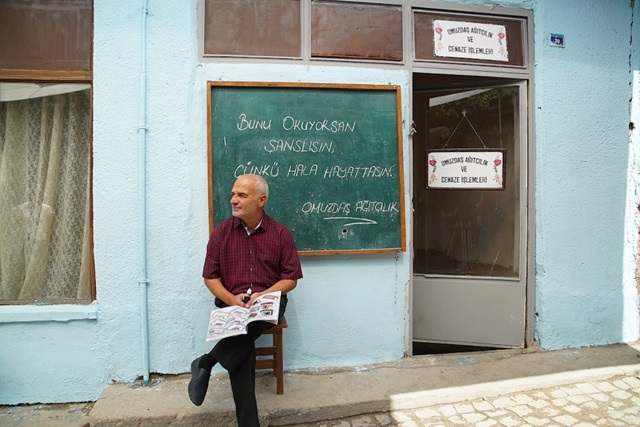 OMUZDAŞ AĞITÇILIK
VE
CENAZE İŞLEMLERİ
BUNU OKUYORSAN
ŞANSLISIN,
ÇÜNKÜ HALA HAYATTASIN.
OMUZDAŞ AĞITÇILIK
OMUZDAŞ AĞITÇILIK
VE
CENAZE İŞLEMLERİ